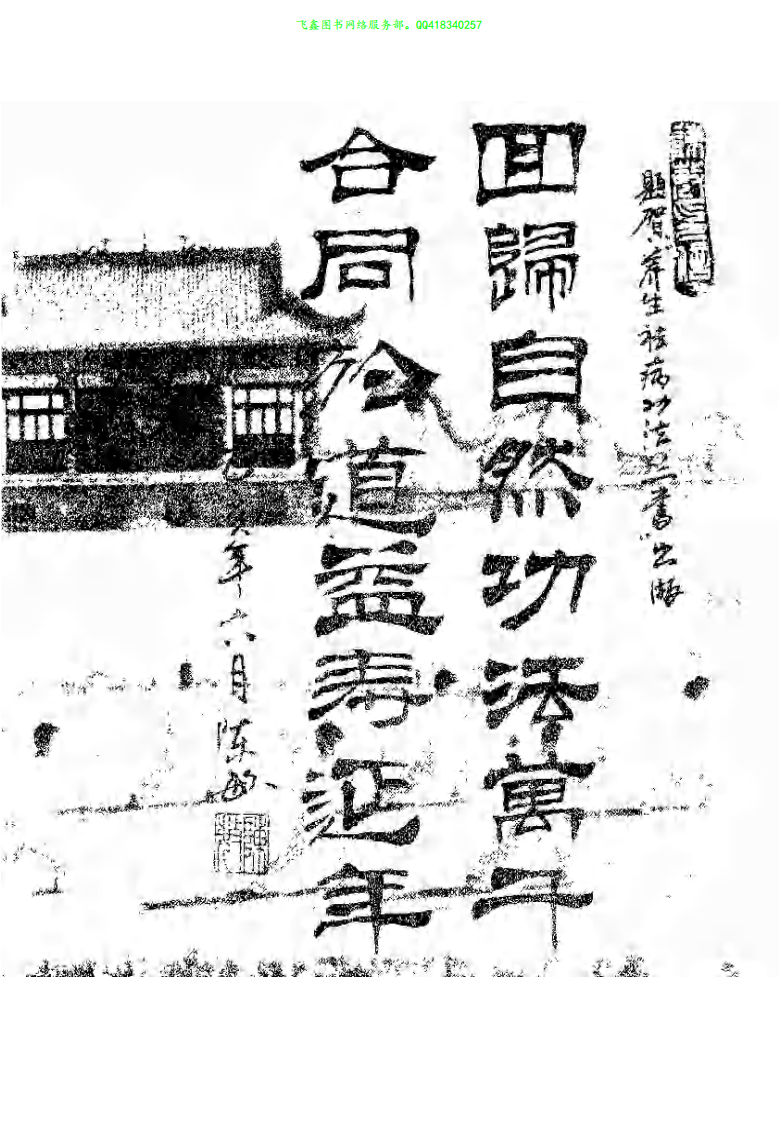 飞鑫图书网络服务部。QQ418340257
题贺"养生祛病功法丛书"出版
回歸自然功法萬千
合同於道益寿延年
年六月 陈